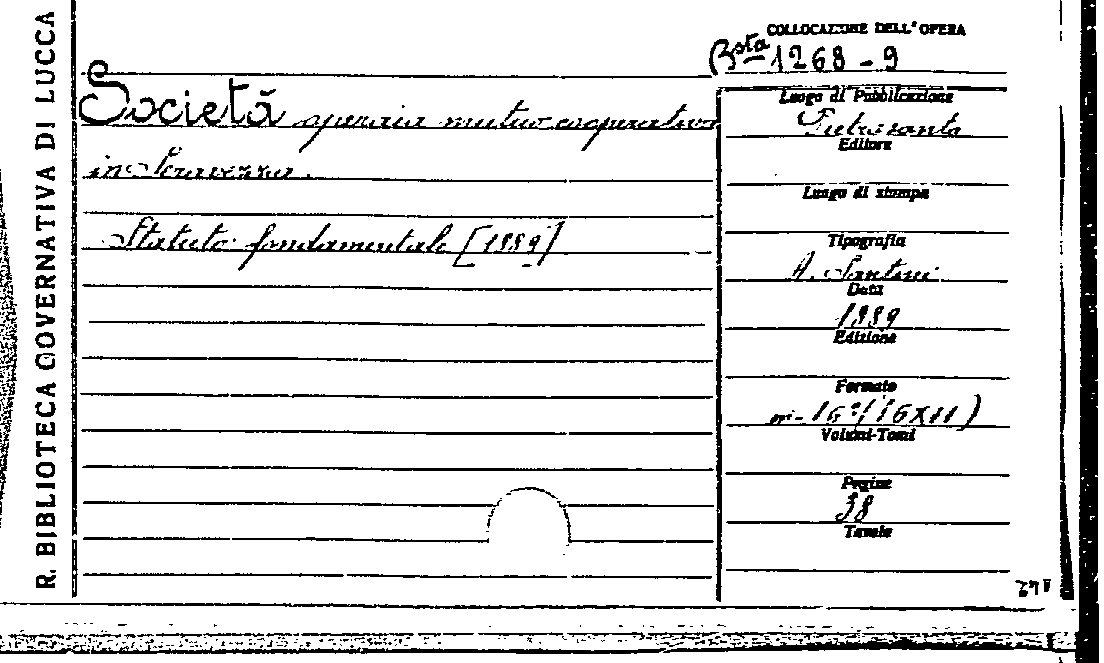 R. BIBLIOTECA GOVERNATIVA DI LUCCA
COLLOCAZIONE DELL'OPERA
Bsta 1268-9
Società operaia mutuo cooperativa
in Seravezza.
Statuto fondamentale [1889]
Luogo di Pubblicazione
Pietrasanta
Editore
Luogo di stampa
Tipografia
A. Santini
Data
1889
Edizione
Formato
in-16º (16X11)
Volumi-Tomi
Pagine
38
Tavole